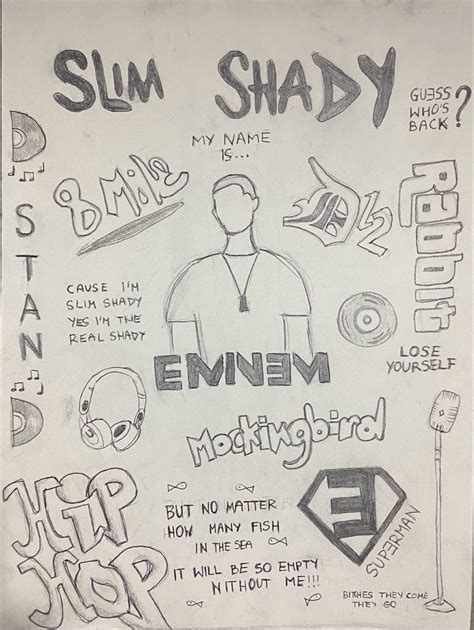 SLIM SHADY
GUESS
WHO'S
BACK?
MY NAME
IS...
8 Mile
D12
RABBIT
STAN
CAUSE I'M
SLIM SHADY
YES I'M THE
REAL SHADY
EMINƎM
LOSE
YOURSELF
Mockingbird
HIP
HOP
BUT NO MATTER
HOW MANY FISH
IN THE SEA
IT WILL BE SO EMPTY
WITHOUT ME!!!
Ǝ
SUPERMAN
BITCHES THEY COME
THEY GO